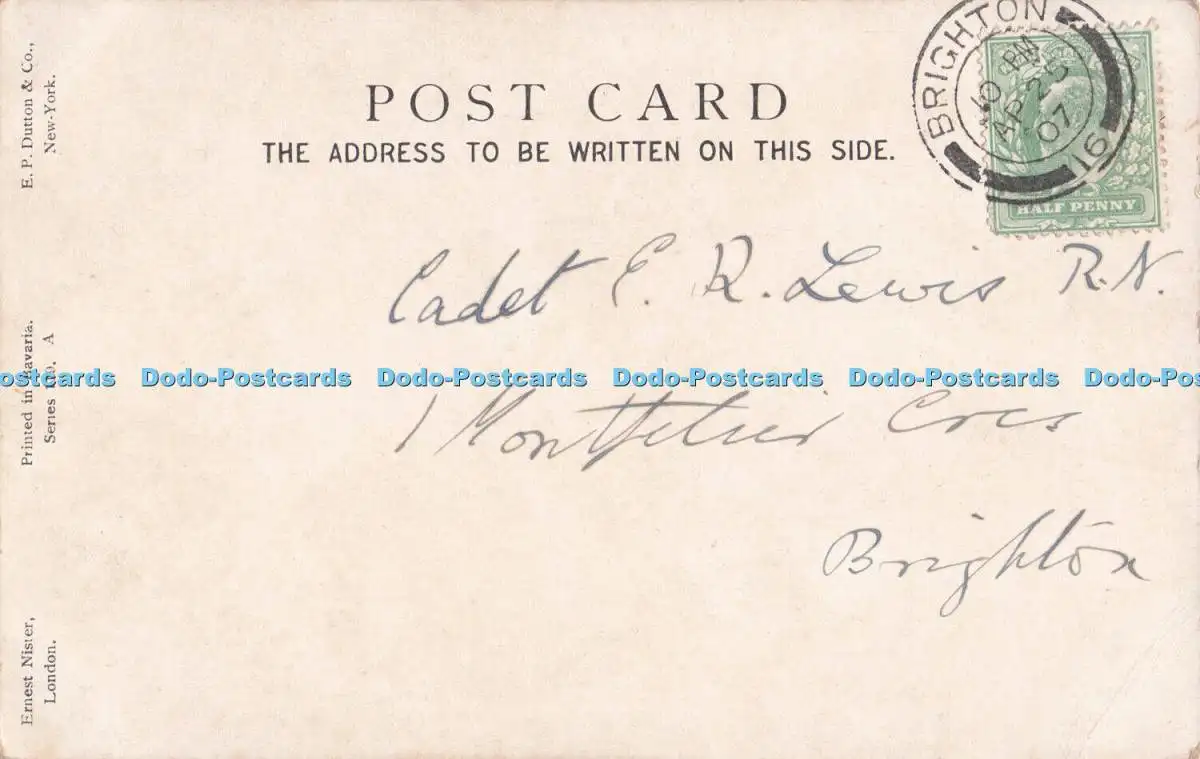 POST CARD
THE ADDRESS TO BE WRITTEN ON THIS SIDE.
BRIGHTON
10 PM
AP 25
07
16
HALF PENNY
Cadet E. R. Lewis R.N.
1 Montpelier Cres
Brighton
E. P. Dutton & Co.,
New-York.
Printed in Bavaria.
Series A
Ernest Nister,
London.
ostcards Dodo-Postcards Dodo-Postcards Dodo-Postcards Dodo-Postcards Dodo-Pos